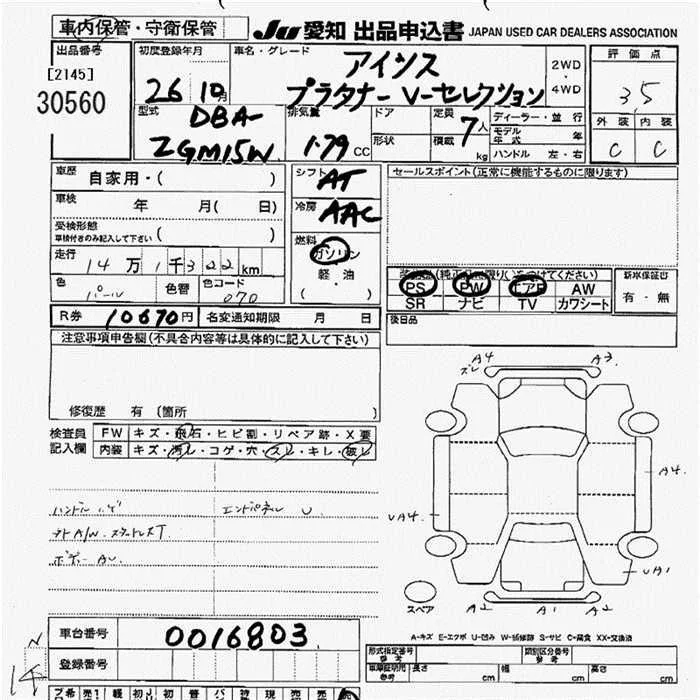 車内保管・守衛保管
JU 愛知 出品申込書 JAPAN USED CAR DEALERS ASSOCIATION
出品番号
[2145]
30560
初度登録年月
26 10月
車名・グレード
アイシス
プラタナー V-セレクション
2WD・4WD
評価点
3.5
外装 内装
C C
型式
DBA-
ZGM15W
排気量
1.79 CC
ドア
形状
定員 7人
積載 kg
ディーラー・並行
モデル年式 年
ハンドル 左・右
車歴
自家用・( )
車検 年 月( 日)
受検形態
車検付きのみ記入して下さい ( )
走行
14万1千322km
色 パール 色替 色コード 070
シフト AT
冷房 AAC
燃料
ガソリン
軽・油
( ・ )
セールスポイント(正常に機能するものに限ります)
PS PW エアB AW
SR ナビ TV カワシート
新車保証書
有・無
後日品
R券 10670円 名変通知期限 月 日
注意事項申告欄(不具合内容等は具体的に記入して下さい)
修復歴 有 (箇所 )
検査員記入欄
FW キズ・飛石・ヒビ割・リペア跡・X要
内装 キズ・汚レ・コゲ・穴・スレ・キレ・破レ
ハンドル ハゲ
エンドパネル U
ボデー AU
A4
ズレ
A3
A4
UA4
UA1
A2 A1 A2
スペア
A=キズ E=エクボ U=凹み W=補修跡 S=サビ C=腐食 XX=交換済
車台番号 0016803
登録番号
形式指定番号
参考
類別区分番号
参考
車庫証明用
参考
長さ cm 幅 cm 高さ cm